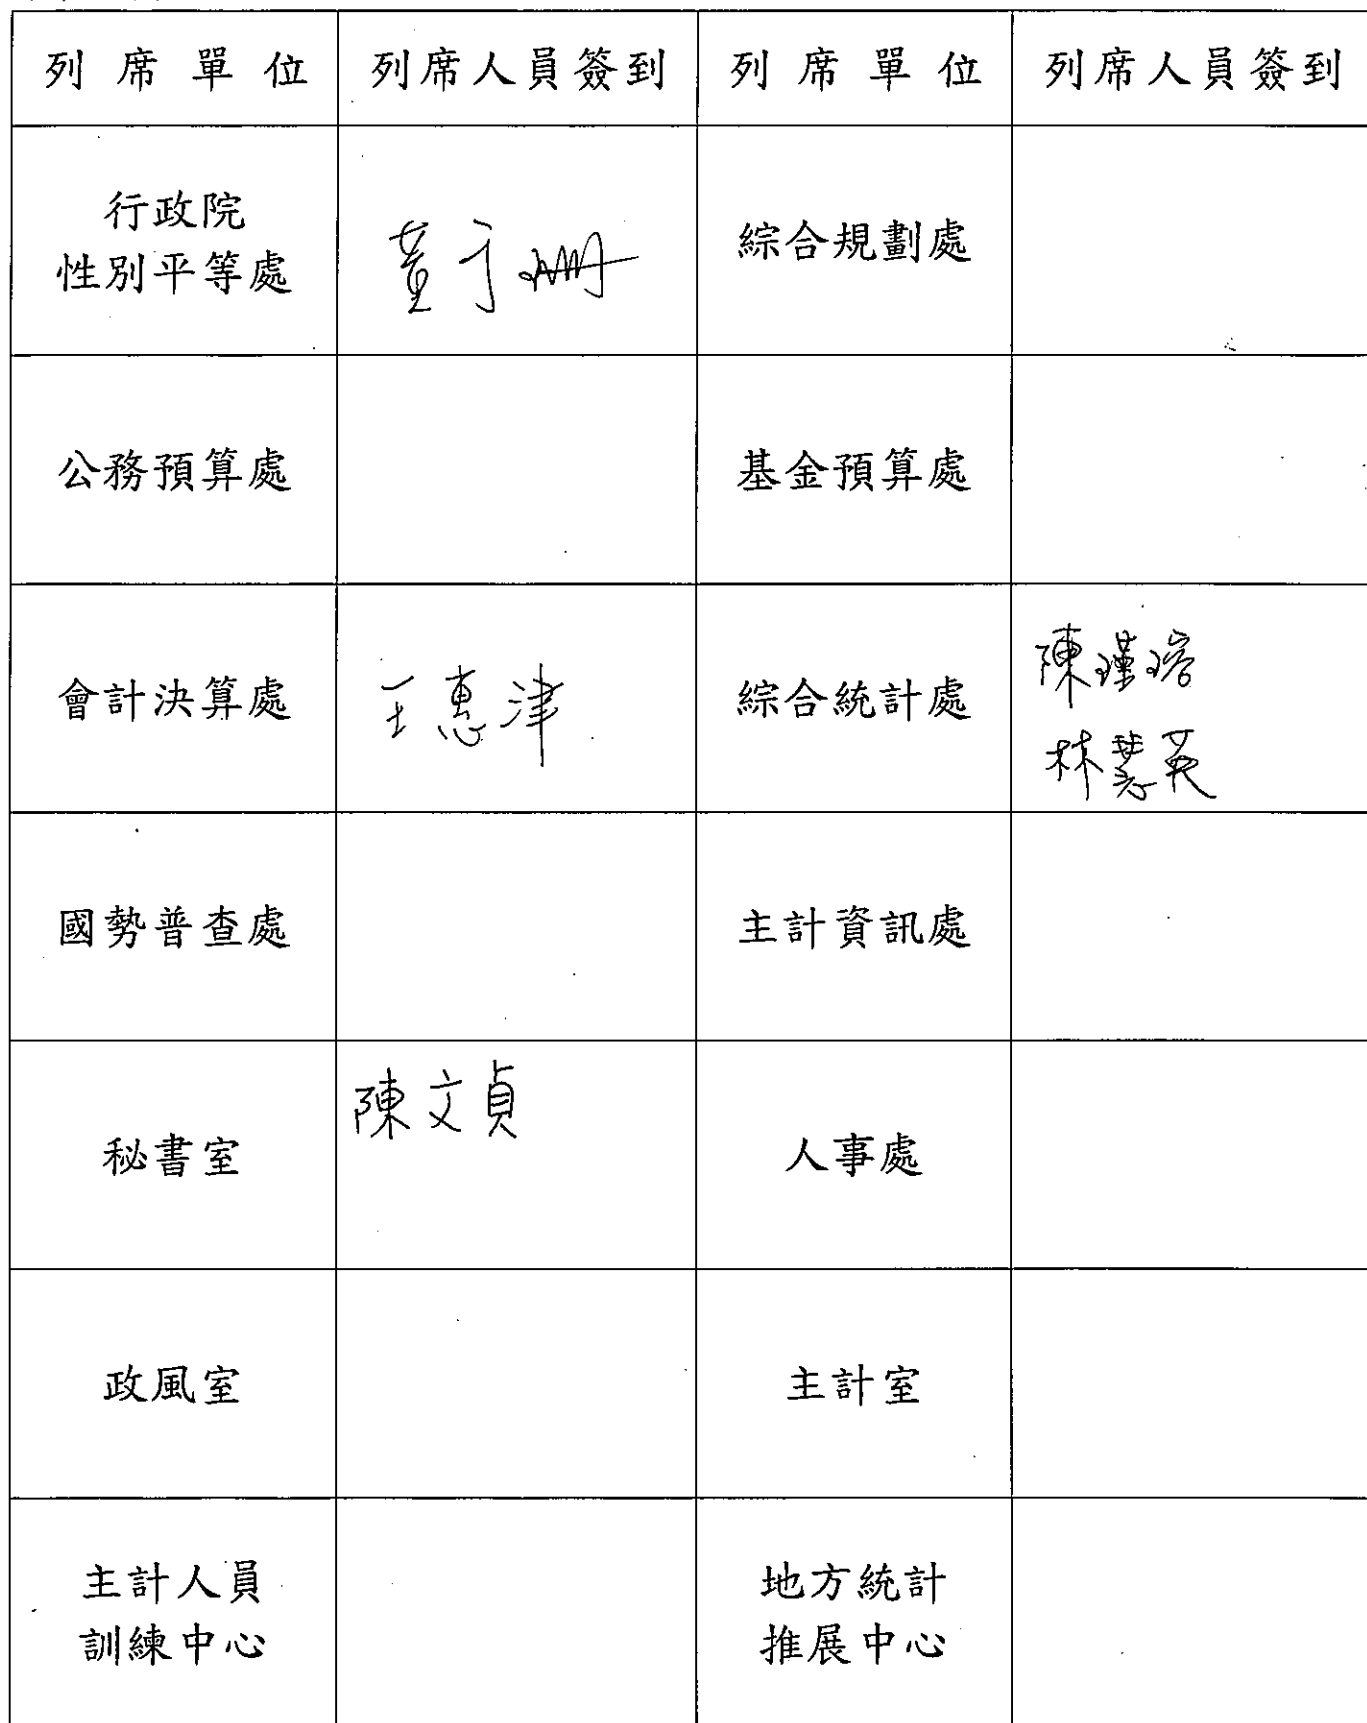 列席單位 列席人員簽到 列席單位 列席人員簽到
行政院
性別平等處
綜合規劃處
公務預算處 基金預算處
會計決算處 王惠津 綜合統計處
陳瑾瑢
林慧英
國勢普查處 主計資訊處
秘書室 陳文貞 人事處
政風室 主計室
主計人員
訓練中心
地方統計
推展中心